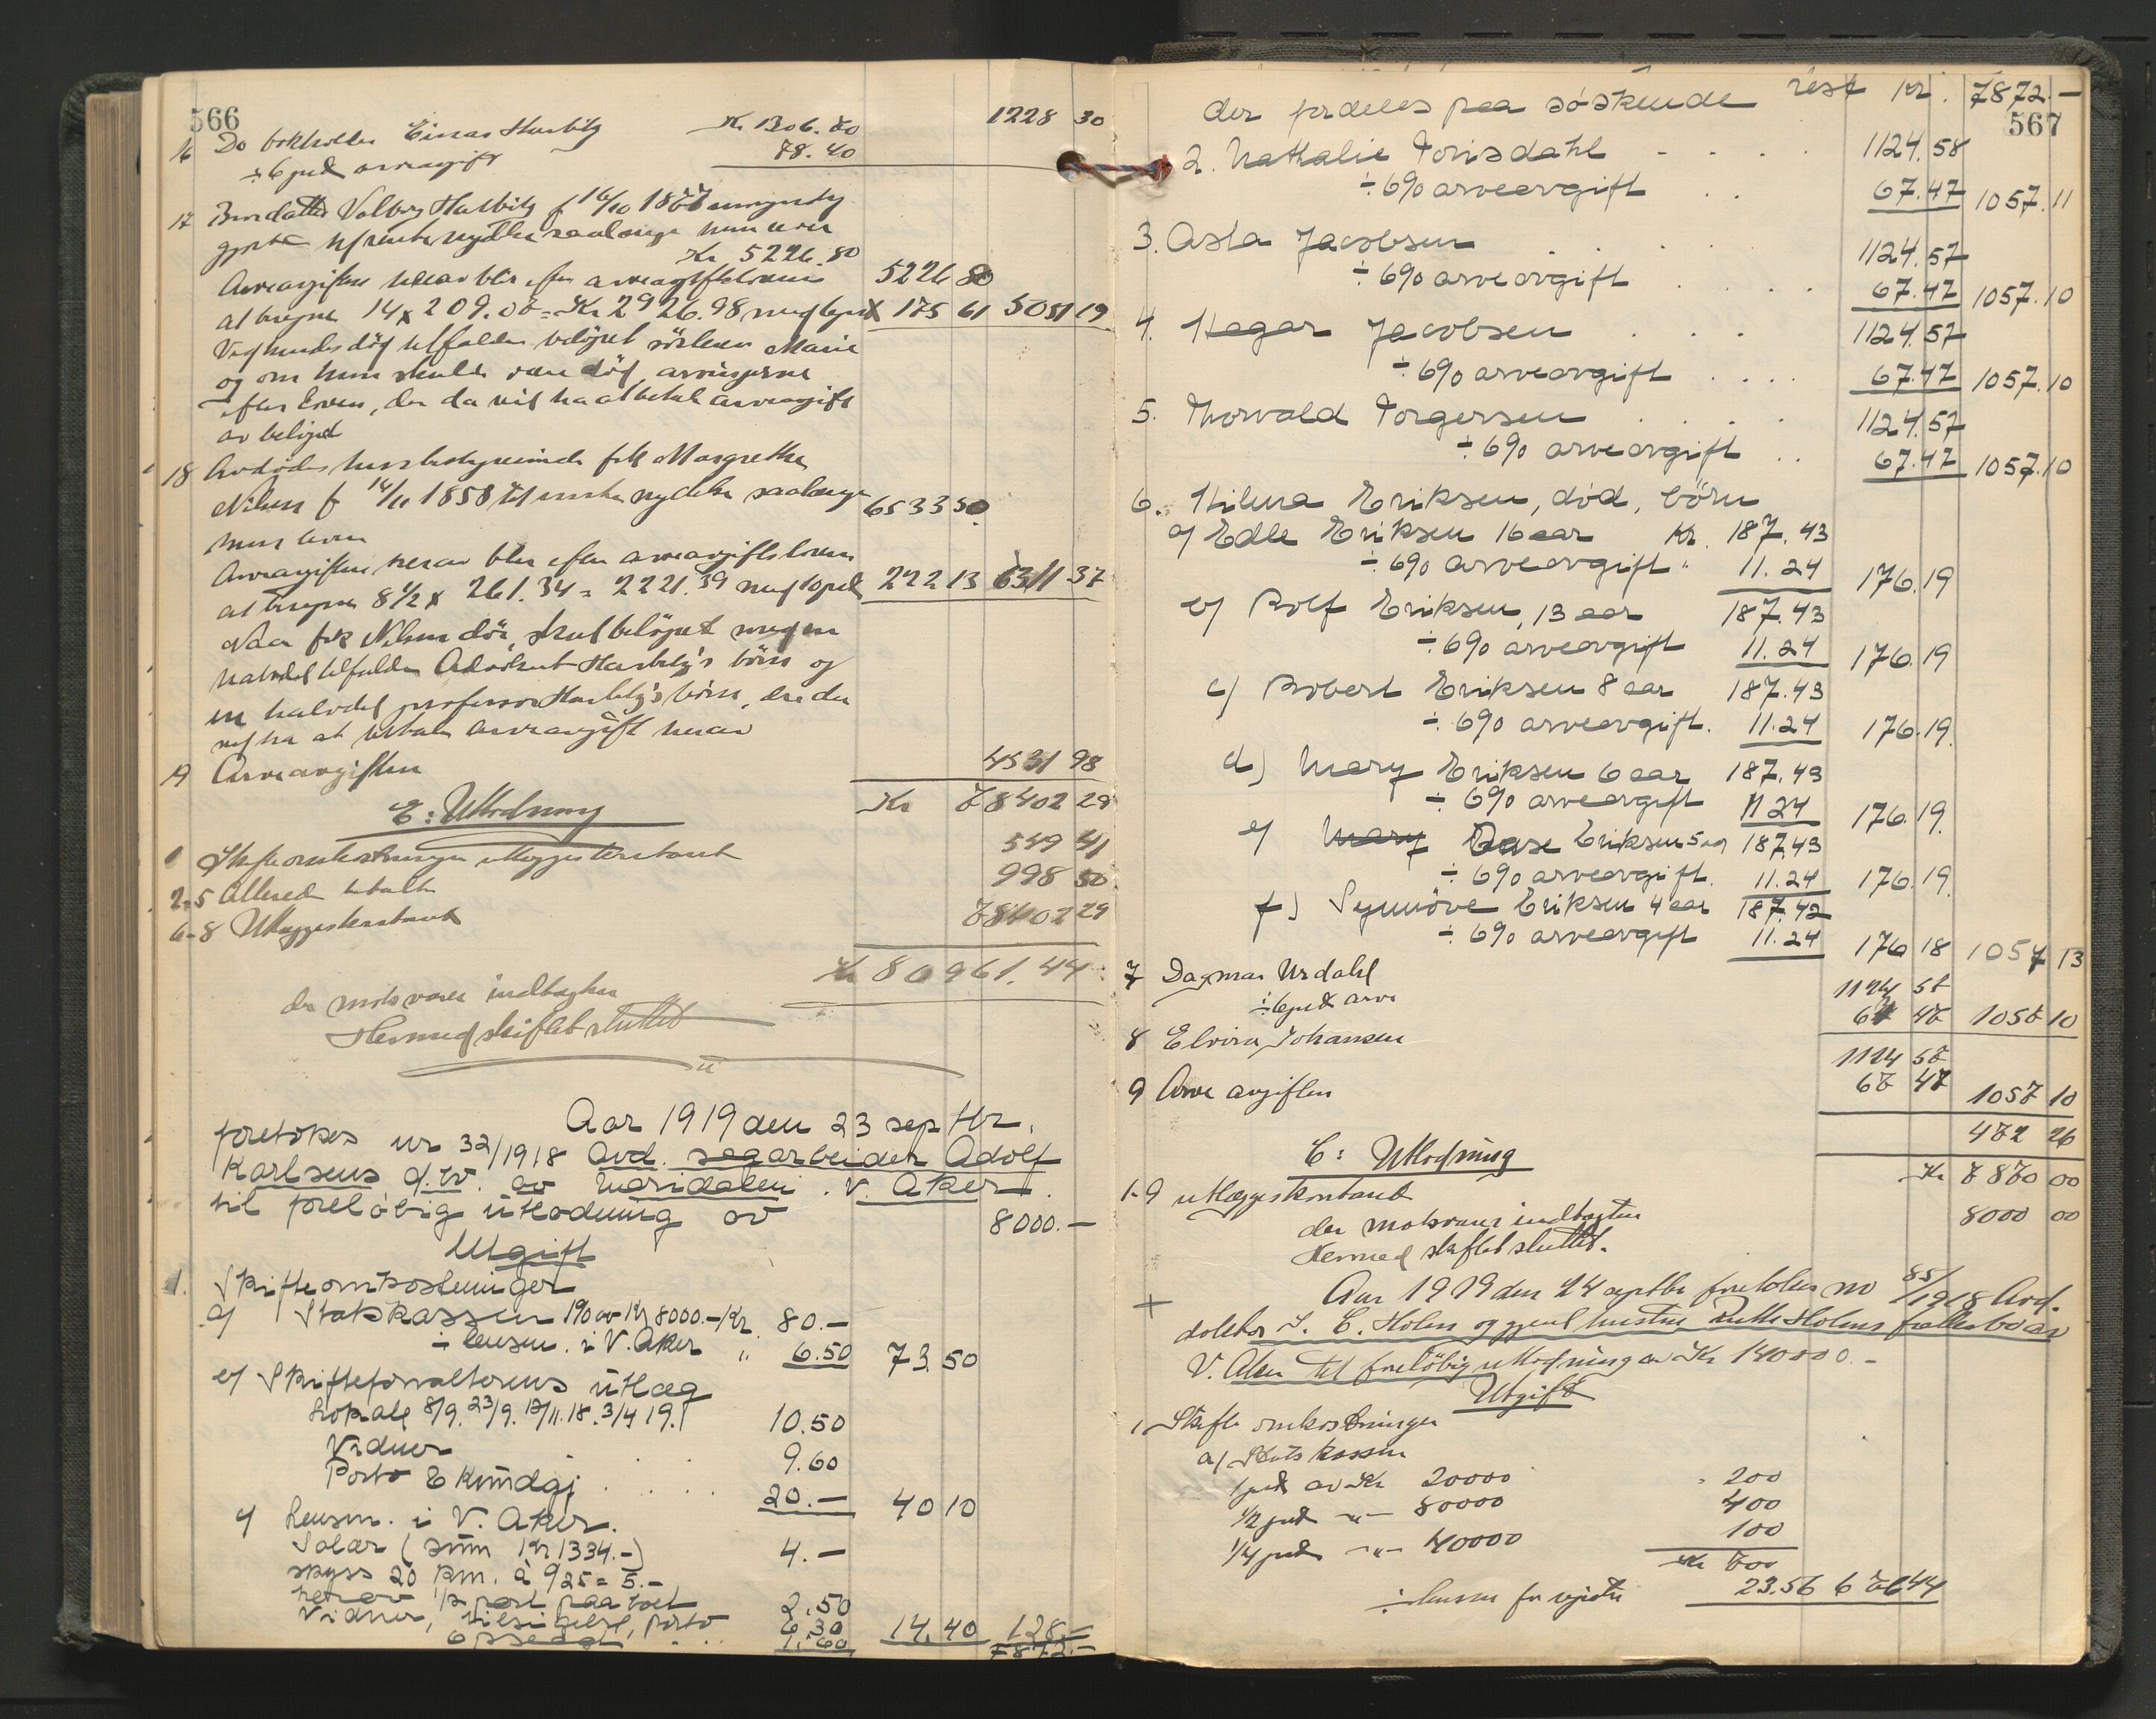 566
16 Do bokholder Einar Harbitz Kr. 1306.80 1228 30
÷ 6 pct arveavgift 78.40
17 Brordatter Valborg Harbitz f 16/10 1877 umyndig
saalænge hun lever
Kr 5226.80
Arveavgiften herav blir efter arveavgiftsloven 5226 80
at beregne 14 x 209.07 = Kr 2926.98 med 6 pct 175 61 5051 19
Ved hendes död tilfalder belöpet sösteren Marie
og om hun skulde være död, arvingerne
efter loven, der da vil ha at betale arveavgift
av belöpet
18 Avdödes husbestyrerinde frk Margrethe
Nilsen f 14/11 1858 til rente nydelse saalænge 6533 50
hun lever
Arveavgiften herav blir efter arveavgiftsloven
at beregne 8 1/2 x 261.34 = 2221.39 med 10 pct 222 13 6311 37
Naar frk Nilsen dör, skal belöpet med en
halvdel tilfalde Advokat Harbitz's börn og
en halvdel professor Harbitz's börn, der da
vil ha at betale arveavgift herav
19 Arveavgiften 4531 98
Kr 78402 29
E: Utlodning
1 Skifteomkostninger utlægges kontant 549 41
2-5 Allerede betalt 998 50
6-8 Utlægges kontant 78402 29
Kr 80961.44
der motsvarer indtægten
Hermed skiftet sluttet
Aar 1919 den 23 septbr.
foretokes nr 32/1918 Avd. sagarbeider Adolf
Karlsens d.bo. av Maridalen. V. Aker.
til foreløbig utlodning av 8000.-
Utgift
1. Skifteomkostninger
a) Statskassen 1% av Kr 8000.- Kr. 80.-
÷ lensm. i V. Aker " 6.50 73 50
b) Skifteforvalterens utlæg
Lokale 8/9. 23/9. 12/11.18. 3/4 19. 10.50
Vidner 9.60
Porto & Kundgj. . . . . 20.- 40 10
c) Lensm. i V. Aker.
Salær (sum Kr 1334.-) 4.-
skyss 20 km. à 0/25 = 5.-
herav 1/2 part paa boet 2.50
Vidner, tilsigelse, porto 6.30
opsedel . . . 1.60 14.40 128.-
7872.-
567
der fordeles paa söskende rest Kr. 7872.-
2. Nathalie Torisdahl - . . . 1124.58
÷ 6% arveavgift . . 67.47 1057.11
3. Asta Jacobsen . . . . 1124.57
÷ 6% arveavgift . . . . 67.47 1057.10
4. Hagar Jacobsen . . . 1124.57
÷ 6% arveavgift . . . . 67.47 1057.10
5. Thorvald Torgersen . . . . 1124.57
÷ 6% arveavgift . . 67.47 1057.10
6. Hilma Eriksen, död, börn
a) Edle Eriksen 16 aar Kr. 187.43
÷ 6% arveavgift " 11.24 176.19
b) Rolf Eriksen, 13 aar 187.43
÷ 6% arveavgift 11.24 176.19
c) Robert Eriksen 8 aar 187.43
÷ 6% arveavgift. 11.24 176.19.
d) Mary Eriksen 6 aar 187.43
÷ 6% arveavgift 11 24 176.19.
e) Mary Aase Eriksen 5 aar 187.43
÷ 6% arveavgift. 11.24 176.19.
f) Synnöve Eriksen 4 aar 187.42
÷ 6% arveavgift 11.24 176 18 1057 13
7 Dagmar Urdahl 1124 57
÷ 6 pct arve 67 47 1057 10
8 Elvira Johansen 1124 57
67 47 1057 10
9 Arve avgiften 472 26
Kr 7870 00
E: Utlodning
1-9 utlægges kontant 8000 00
der motsvarer indtægten
Hermed skiftet sluttet.
Aar 1919 den 24 septbr foretokes no 85/1918 Avd.
doktor J. E. Holms og gjenl hustru Holms fællesbo av
V. Aker til foreløbig utlodning av Kr 140000.-
Utgift
1 Skifte omkostninger
a) Statskassen
1 pct av Kr 20000 200
1/2 pct -"- 80000 400
1/4 pct -"- 40000 100
Kr 700
÷ lensm for registr 23.56 676 44